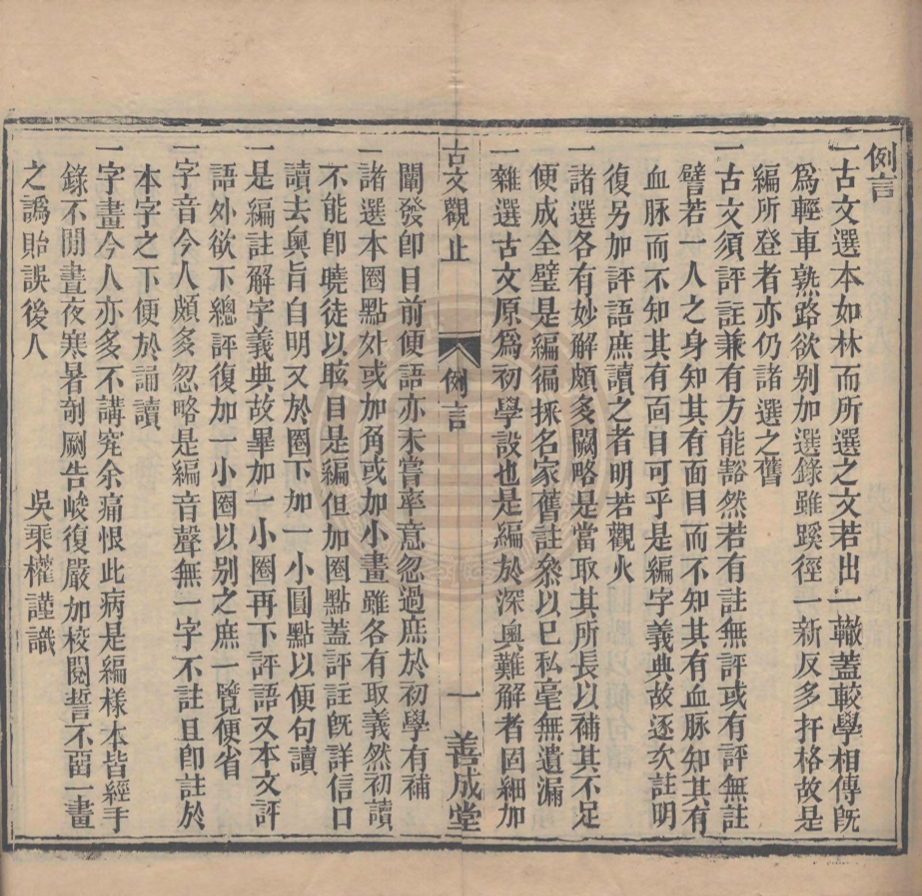 例言
一古文選本如林而所選之文若出一轍蓋較學相傳既
爲輕車熟路欲别加選錄雖蹊徑一新反多扞格故是
編所登者亦仍諸選之舊
一古文須評註兼有方能豁然若有註無評或有評無註
譬若一人之身知其有面目而不知其有血脉知其有
血脉而不知其有面目可乎是編字義典故逐次註明
復另加評語庶讀之者明若觀火
一諸選各有妙解頗多闕略是當取其所長以補其不足
便成全璧是編徧採名家舊註叅以已私毫無遺漏
一雜選古文原爲初學設也是編於深奥難解者固細加
古文觀止
例言
一
善成堂
闡發卽目前便語亦未嘗率意忽過庶於初學有補
一諸選本圈點外或加角或加小畫雖各有取義然初讀
不能卽曉徒以眩目是編但加圈點蓋評註旣詳信口
讀去奥旨自明又於圈下加一小圓點以便句讀
一是編註解字義典故畢加一小圈再下評語又本文評
語外欲下總評復加一小圈以别之庶一覽便省
一字音今人頗多忽略是編音聲無一字不註且卽註於
本字之下便於誦讀
一字畫今人亦多不講究余痛恨此病是編樣本皆經手
錄不閒晝夜寒暑剞劂告峻復嚴加校閱誓不畱一畫
之譌貽誤後人
吳乘權謹識